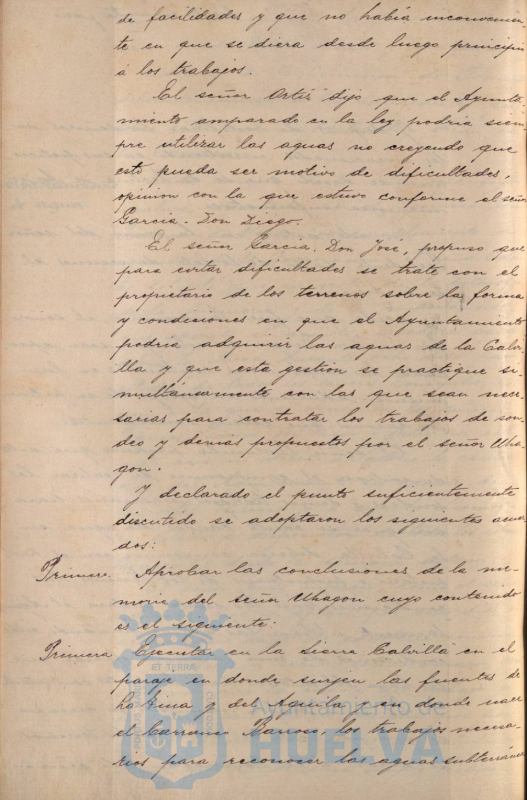 de facilidades y que no había inconvenien-
te en que se diera desde luego principio
á los trabajos.
El señor Ortíz dijo que el Ayunta-
miento amparado en la ley podría siem
pre utilizar las aguas no creyendo que
esto pueda ser motivo de dificultades,
opinion con la que estuvo conforme el señor
Garcia. Don Diego.
El señor Garcia. Don José, propuso que
para cortar dificultades se trate con el
propietario de los terrenos sobre la forma
y condiciones en que el Ayuntamiento
podría adquirir las aguas de la Calvi-
lla y que esta gestion se practique si-
multáneamente con las que sean nece-
sarias para contratar los trabajos de son-
deo y demás propuestos por el señor Uha-
gon.
Y declarado el punto suficientemente
discutido se adoptaron los siguientes acuer
dos:
Primero. Aprobar las conclusiones de la me-
moria del señor Uhagon cuyo contenido
es el siguiente:
Primera Ejecutar en la Sierra Calvilla en el
paraje en donde surjen las fuentes de
la y del Aguila y en donde nace
el Barranco Barroso, los trabajos necesa-
rios para reconocer las aguas subterráneas
ET TERRÆ
Ayuntamiento de
HUELVA